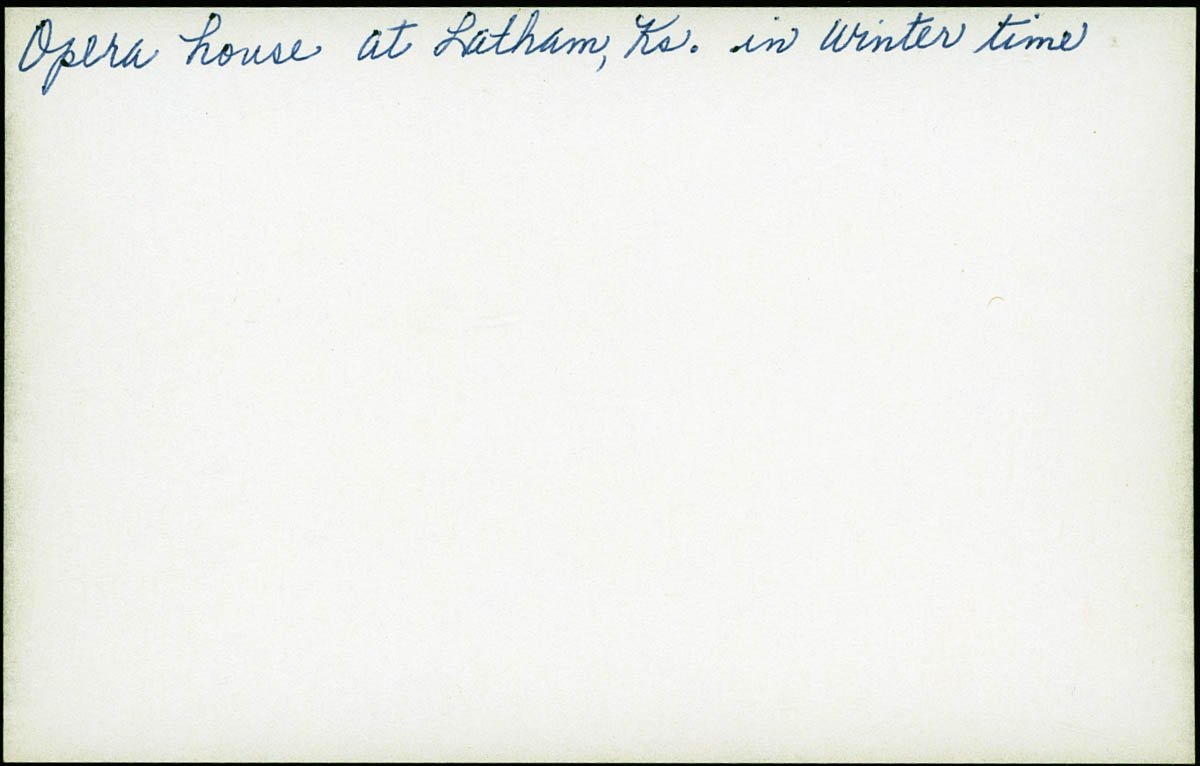 Opera house at Latham, Ks. in Winter time